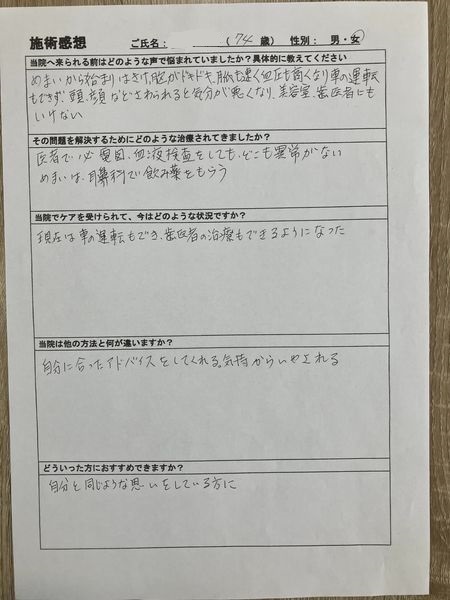 施術感想 ご氏名: (74 歳) 性別: 男・女
当院へ来られる前はどのような声で悩まれていましたか?具体的に教えてください
めまいから始まりはきけ、胸がドキドキ、脈も速く血圧も高くなり車の運転
もできず、頭、顔などさわられると気分が悪くなり、美容室、歯医者にも
いけない
その問題を解決するためにどのような治療されてきましたか?
医者で心電図、血液検査をしても、どこも異常がない
めまいは、耳鼻科で飲み薬をもらう
当院でケアを受けられて、今はどのような状況ですか?
現在は車の運転もでき、歯医者の治療もできるようになった
当院は他の方法と何が違いますか?
自分に合ったアドバイスをしてくれる。気持からいやされる
どういった方におすすめできますか?
自分と同じような思いをしている方に